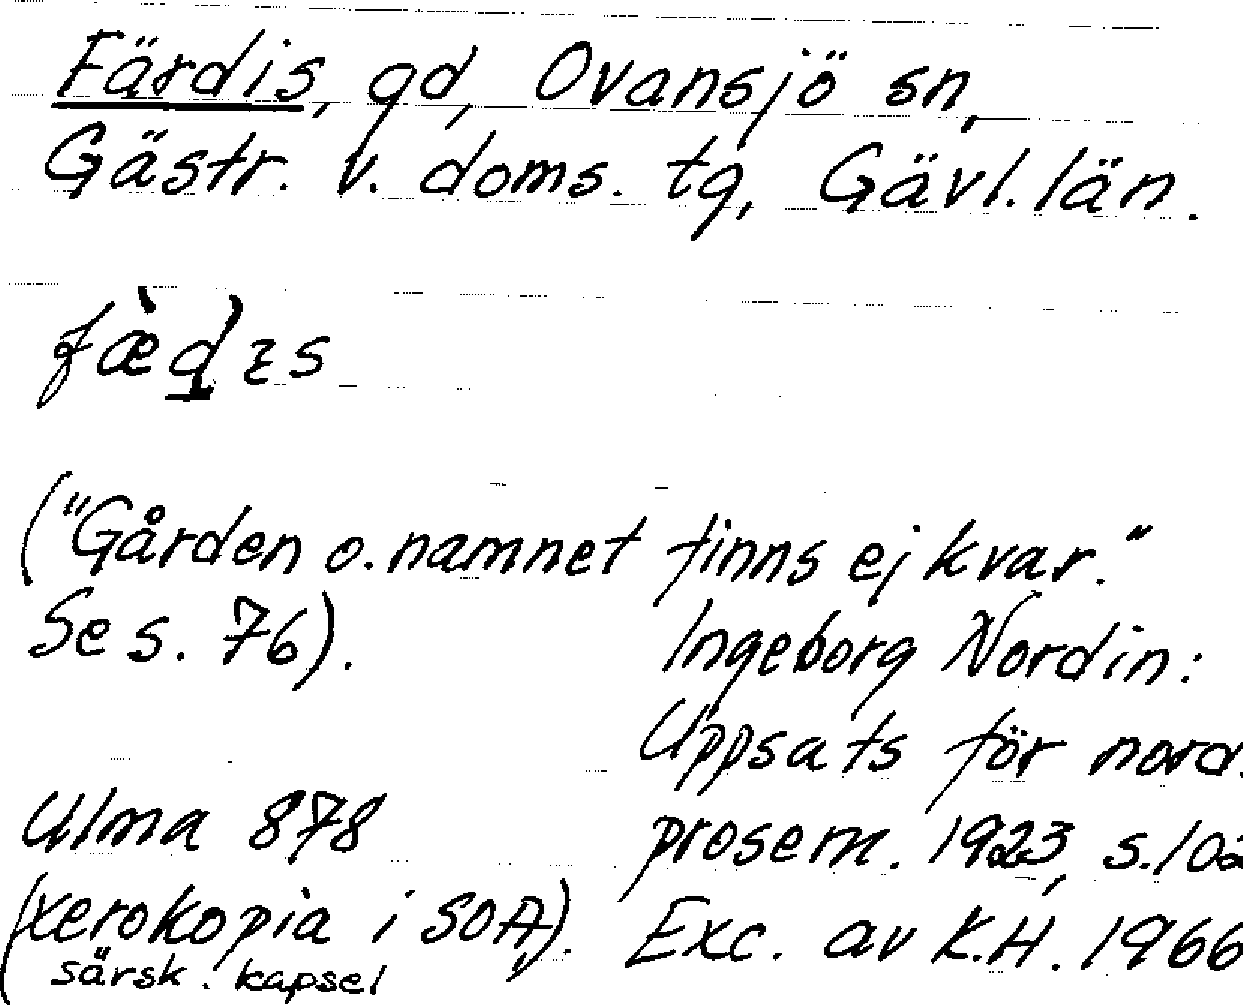 Färdis, gd, Ovansjö sn,
Gästr. v. doms. tg, Gävl. län.
("Gården o. namnet finns ej kvar."
Se s. 76).
Ingeborg Nordin:
Uppsats för nord.
prosem. 1923, s. 102
Exc. av K.H. 1966
Ulma 878
(xerokopia i SOA).
särsk. kapsel